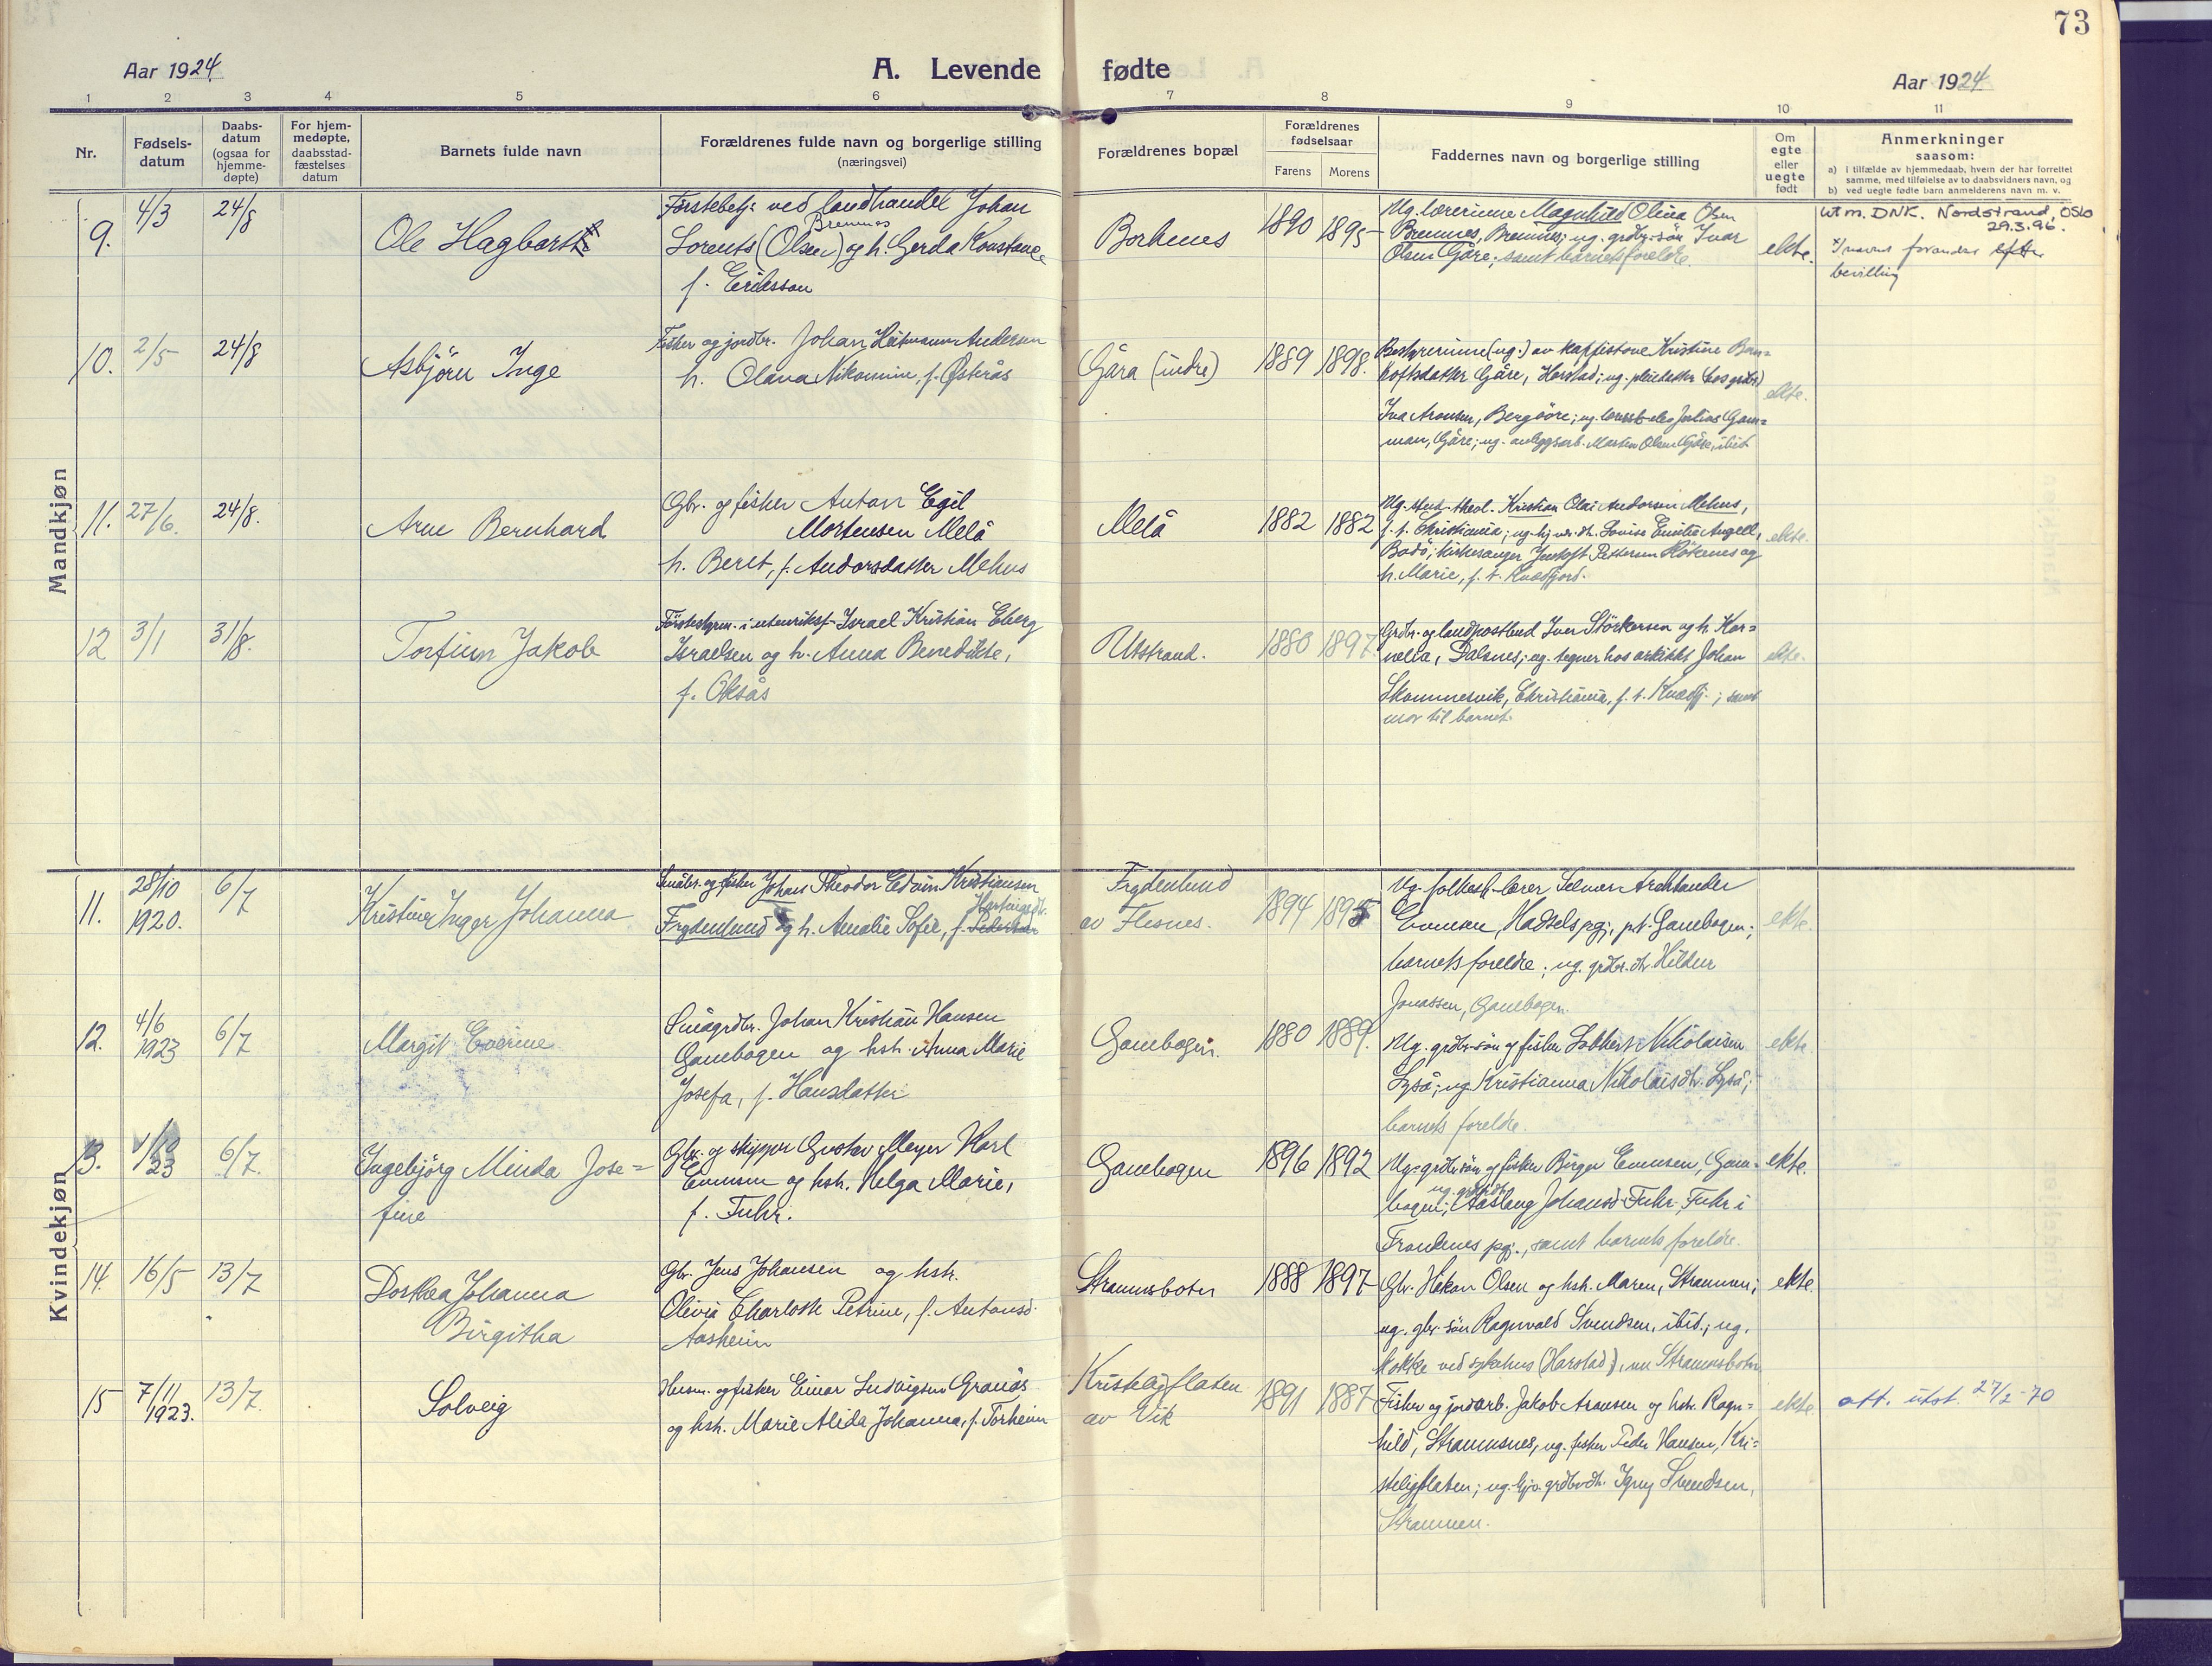 73
Aar 1924
A. Levende fødte
Aar 1924.
1 2 3 4 5 6 7 8 9 10 11
Nr.
Fødsels-
datum
Daabs-
datum
(ogsaa for
hjemme-
døpte)
For hjem-
medøpte,
daabsstad-
fæstelses
datum
Barnets fulde navn
Forældrenes fulde navn og borgerlige stilling
(næringsvei)
Forældrenes bopæl
Forældrenes
fødselsaar
Farens Morens
Faddernes navn og borgerlige stilling
Om
egte
eller
uegte
født
Anmerkninger
saasom:
a) i tilfælde av hjemmedaab, hvem der har forrettet
samme, med tilføielse av to daabsvidners navn, og
b) ved uegte fødte barn anmelderens navn m. v.
Mandkjøn
9. 4/3 24/8
Ole Hagbart
Förstebetj. ved landhandel Johan
Bremnes
Lorents (Olsen) og h. Gerda Konstanse
f. Eriksson
Borkenes
1890 1895
Ug. lærerinne Magnhild Olina Olsen
Bremnes, Bremnes; ug. grdbr.-sön Ivar
Olsen Gåre; samt barnets foreldre.
ekte.
Ut m. DNK. Nordstrand, Oslo
29.3.96.
navnet forandret efter
bevilling
10. 2/5 24/8
Asbjörn Inge
Fisker og jordbr. Johan Heitmann Andersen
h. Olava Nikomine, f. Østerås
Gåra (indre)
1889 1898.
Bestyrerinne (ug.) av kaffistove Kristine
Gåre, Harstad; ug. pleiedatter hos grdbr.
Aronsen, Bergsöre; ug. Julius Gam=
man, Gåre; ug. anleggsarb. Morten Olsen Gåre, ibid
ekte.
11. 27/6. 24/8.
Arne Bernhard
Gbr. og fisker Anton Egil
Mortensen Melå
h. Beret, f. Andorsdatter Mehus
Melå
1882 1882
Ug. stud. theol. Kristian Olai Andorsen Mehus,
f. t. Christiania; ug. Lovise Emilie Angell,
Bodö; kirkesanger Pettersen Hökenes og
h. Marie, f. t. Kvæfjord.
ekte.
12 3/1 31/8.
Torfinn Jakob
Förstestyrm. i utenriksf. Israel Kristian Eberg
Israelsen og h. Anna Benedikte,
f. Oksås
Utstrand.
1880 1897.
Grdbr. og landpostbud Iver Störkersen og h. Kor=
nelia, Dalsnes; ug. tegner hos arkitekt Johan
Skommesvik, Christiania, f. t. Kvæfj.; samt
mor til barnet.
ekte.
Kvindekjøn
11. 28/10
1920. 6/7
Kristine Inger Johanna
Småbr. og fisker Johan Theodor Edvin Kristiansen
Hartvigsdtr.
Frydenlund og h. Amalie Sofie, f. Pedersen
Frydenlund
av Flesnes.
1894 1895
Ug. folkesk-lærer Selmer
Evensen, Hadsels pgj., p.t. Ganebogen;
barnets foreldre; ug. grdbr. dtr. Hildur
Jonassen, Ganebogen.
ekte.
12. 4/6
1923 6/7
Margit Everine
Smågrdbr. Johan Kristian Hansen
Ganebogen og hstr. Anna Marie
Josefa, f. Hansdatter
Ganebogen.
1880 1889.
Ug. grdbr-sön og fisker Nikolaisen
Lyså; ug. Kristianna Nikolaisdtr. Lyså;
barnets foreldre.
ekte.
13. 23 6/7.
Ingebjörg Minda Jose=
fine
Gbr. og skipper Gustav Meyer Karl
Evensen og hstr. Helga Marie,
f. Fuhr.
Ganebogen
1896 1892
Ug. grdbr.sön og fisker Birger Evensen, Gane=
bogen; Aaslaug Johansd. Fuhr, Fuhr i
Trondenes pgj., samt barnets foreldre.
ekte.
14. 16/5 13/7
Dorthea Johanna
Birgitha
Gbr. Jens Johansen og hstr.
Olivia Charlotte Petrine, f. Antonsd.
Aasheim
Straumsboten
1888 1897
Gbr. Håkon Olsen og hstr. Maren, Straumen;
ug. gbr. sön Ragnvald Svendsen, ibid.; ug.
kokke ved sykehus (Harstad), nu Straumsboten
ekte.
15 7/11
1923. 13/7.
Solveig
Husm. og fisker Einar Ludvigsen Granås
og hstr. Marie Alida Johanna, f. Torheim
Kristeligflaten
av Vik
1891 1887
Fisker og jordarb. Jakob Aronsen og hstr. Ragn=
hild, Straumsnes, ug. fisker Peder Hansen, Kri=
steligflaten; ug. grdbrdtr. Svendsen,
Straumen.
ekte.
att. utst. 27/2-70